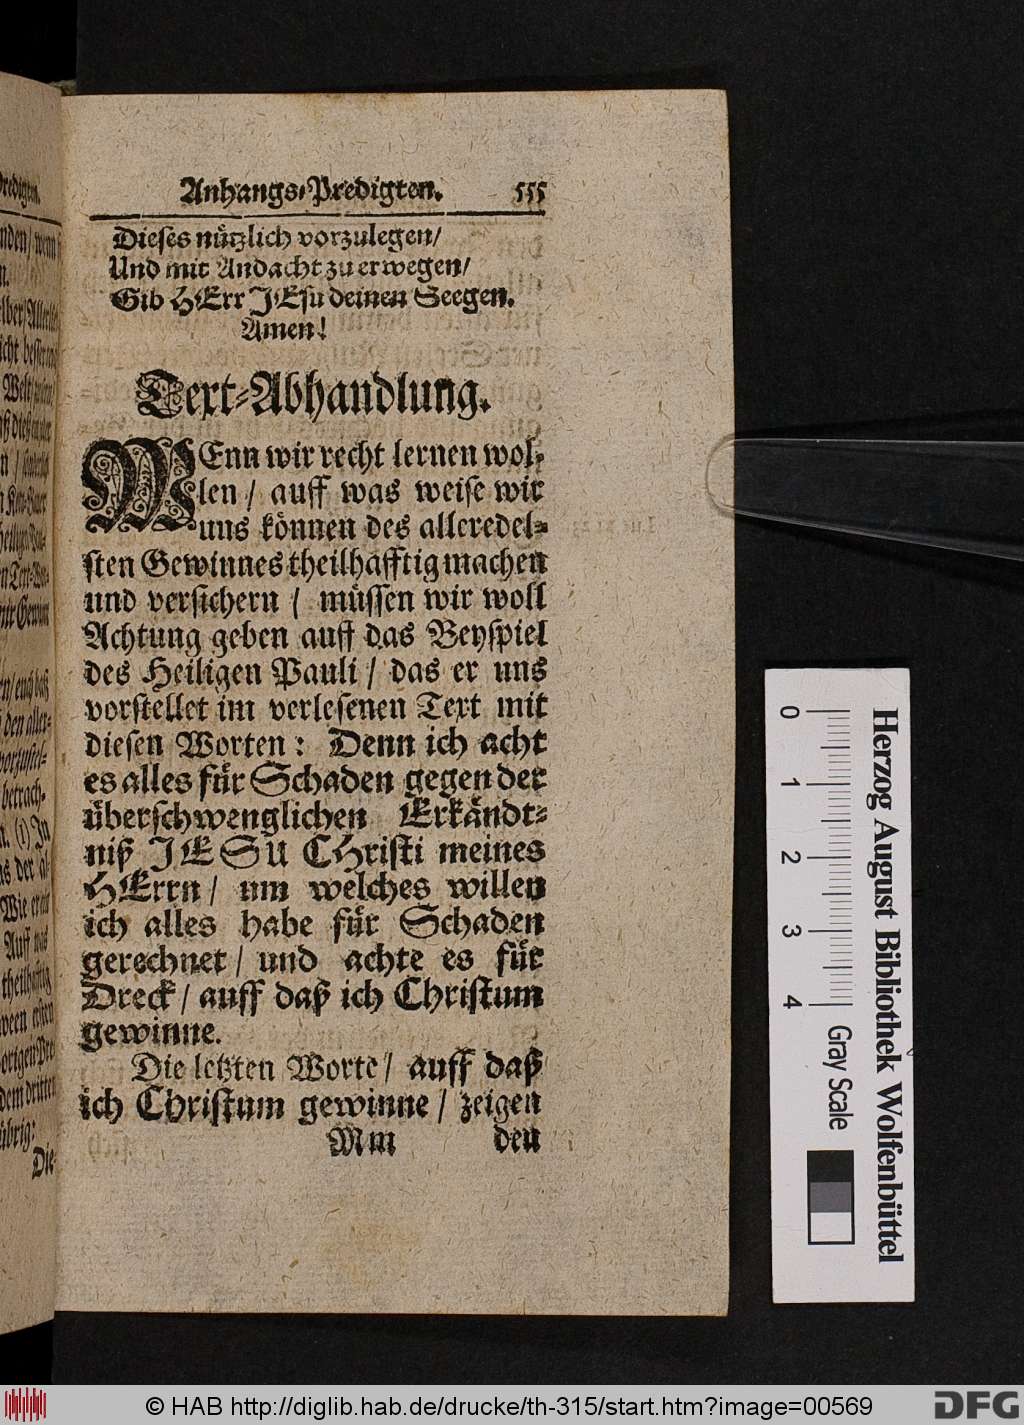 Anhangs-Predigten. 555
Dieses nützlich vorzulegen/
Und mit Andacht zu erwegen/
Gib HErr JEsu deinen Seegen.
Amen!
Text-Abhandlung.
WEnn wir recht lernen wol-
len / auff was weise wir
uns können des alleredel-
sten Gewinnes theilhafftig machen
und versichern / müssen wir woll
Achtung geben auff das Beyspiel
des Heiligen Pauli / das er uns
vorstellet im verlesenen Text mit
diesen Worten: Denn ich acht
es alles für Schaden gegen der
überschwenglichen Erkändt-
niß JESU CHristi meines
HErrn / um welches willen
ich alles habe für Schaden
gerechnet / und achte es für
Dreck / auff daß ich Christum
gewinne.
Die letzten Worte / auff daß
ich Christum gewinne / zeigen
Mm den
0 1 2 3 4
Gray Scale
Herzog August Bibliothek Wolfenbüttel
© HAB http://diglib.hab.de/drucke/th-315/start.htm?image=00569
DFG